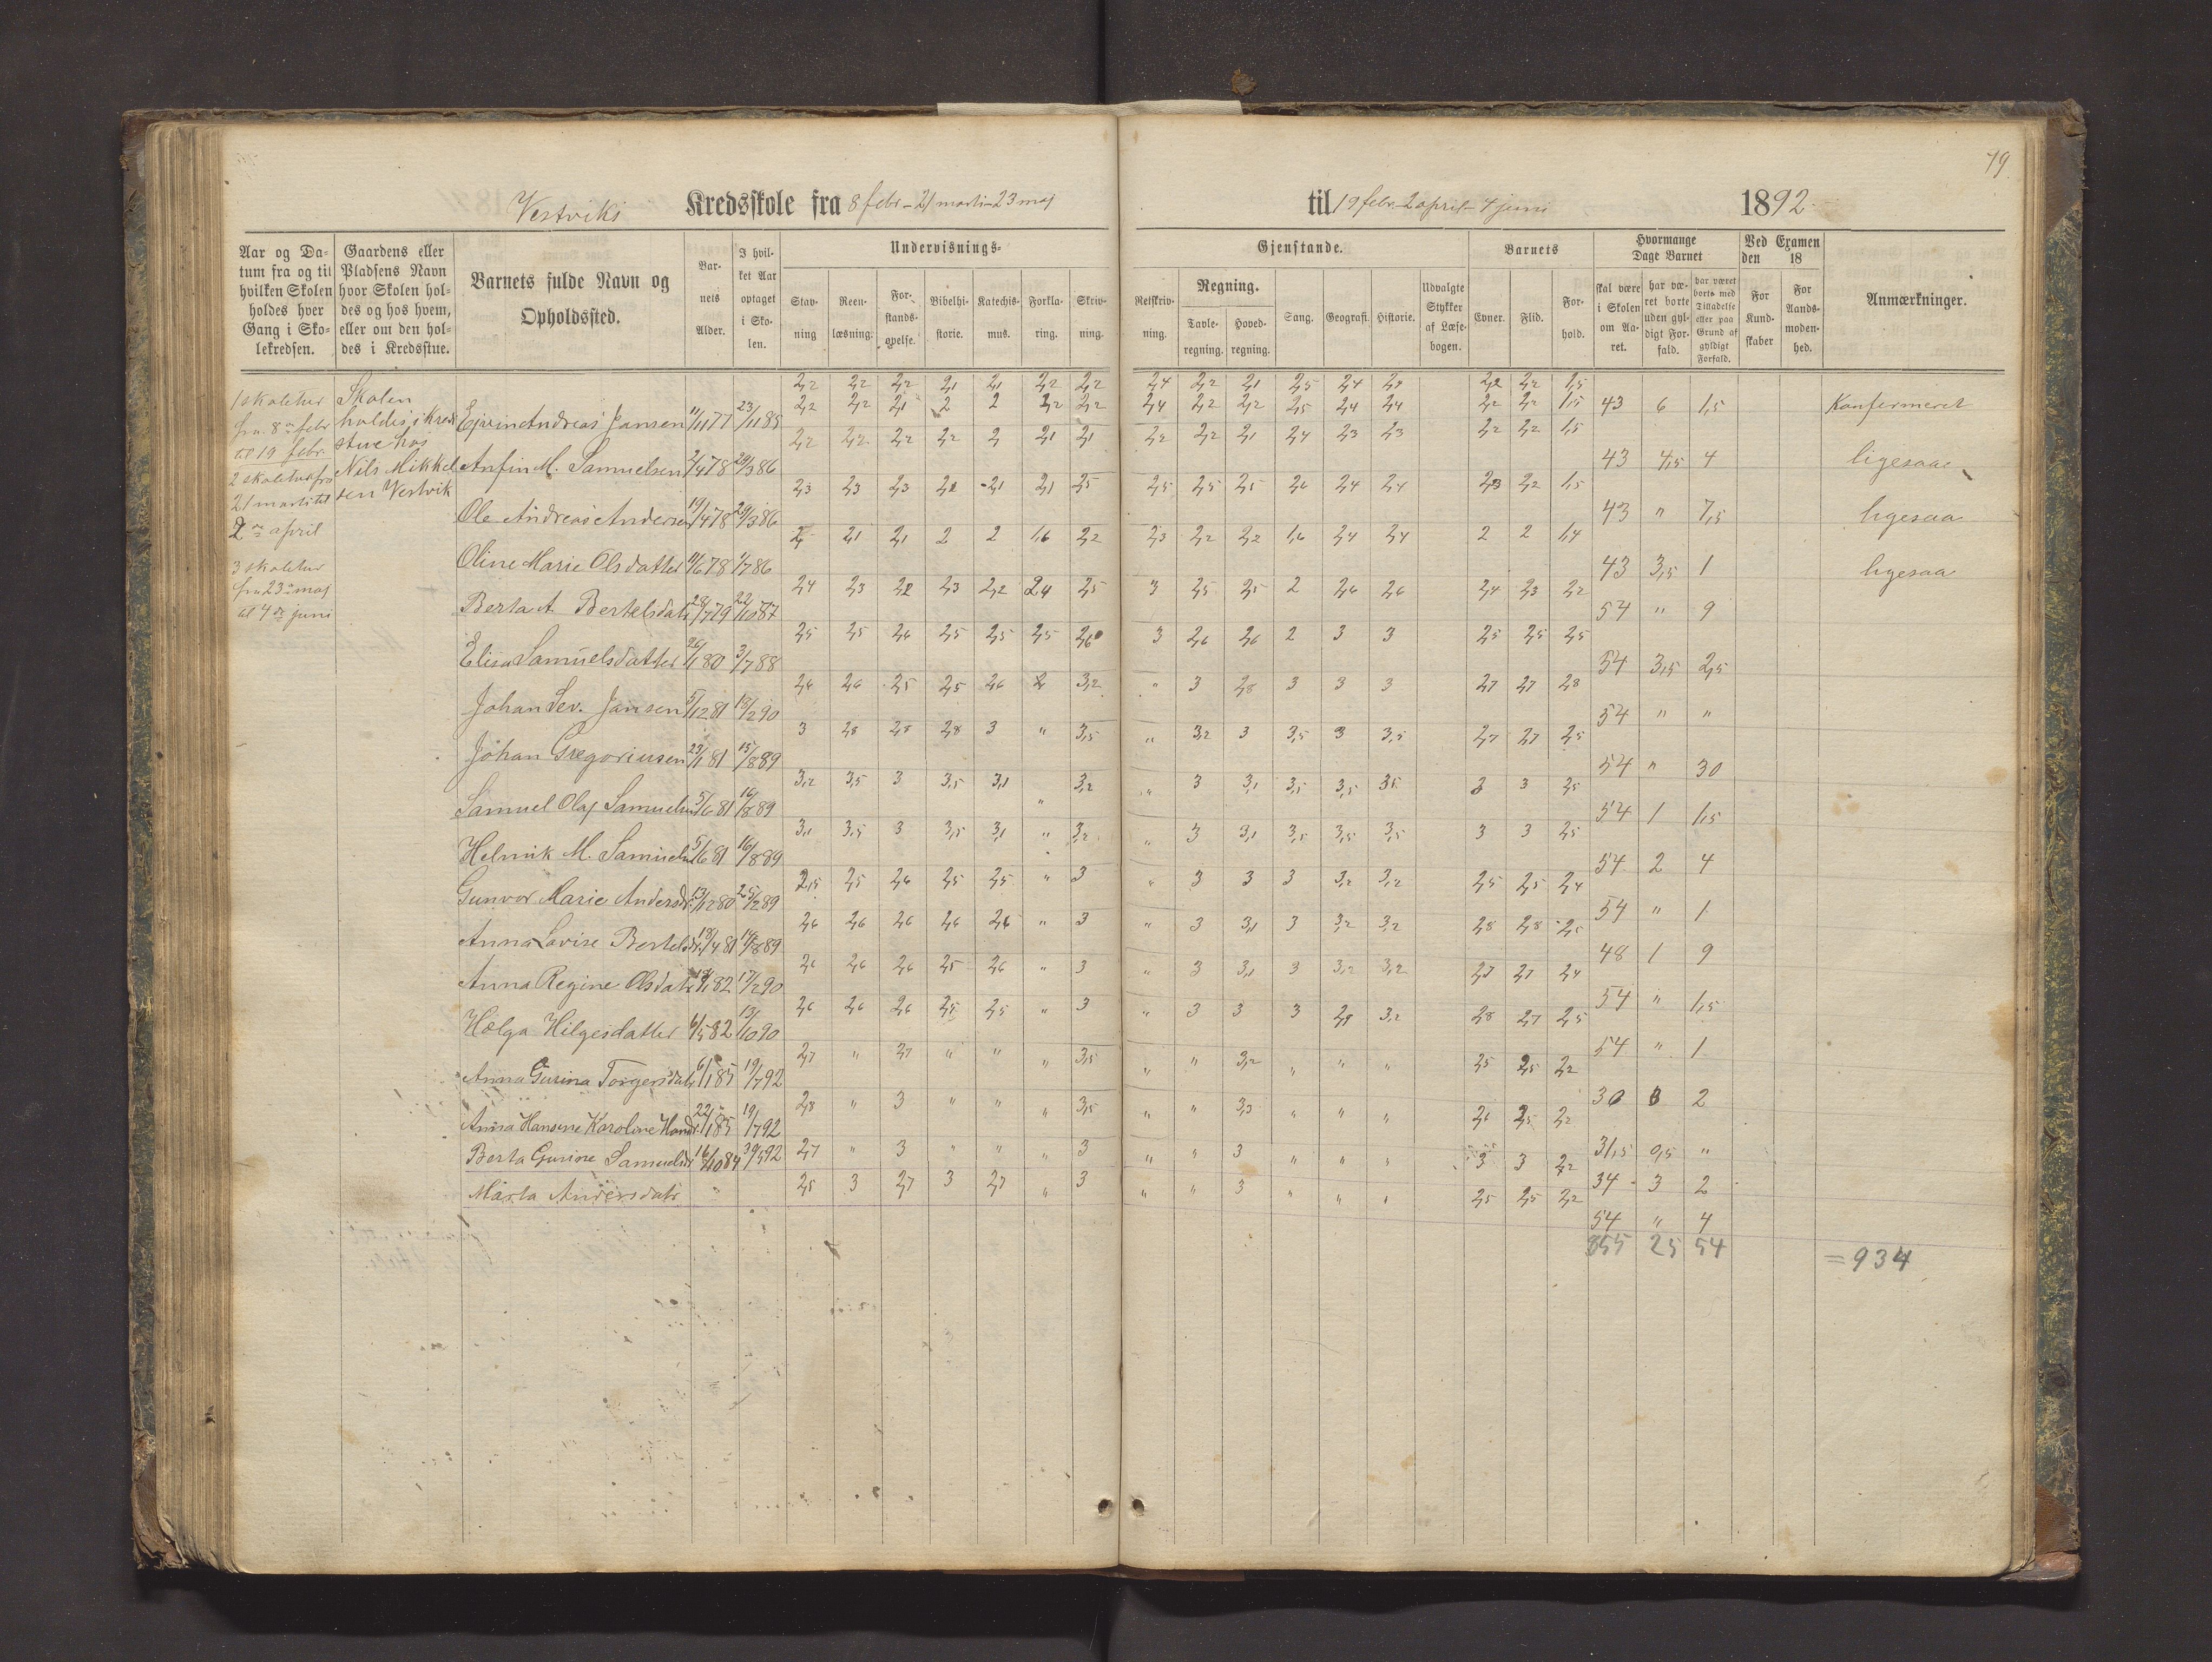 79
Vestviks Kredsskole fra 8 febr - 21 marti - 23 maj til 19 febr - 2 april - 4 juni 1892
Aar og Datum fra og til hvilken Skolen holdes hver Gang i Skolekredsen.
Gaardens eller Pladsens Navn hvor Skolen holdes og hos hvem, eller om den holdes i Kredsstue.
Barnets fulde Navn og Opholdssted.
Barnets Alder.
I hvilket Aar optaget i Skolen.
Undervisnings-
Stavning
Reenlæsning.
Forstandsøvelse.
Bibelhistorie.
Katechismus.
Forklaring.
Skrivning.
Gjenstande.
Retskrivning.
Regning.
Tavleregning.
Hovedregning.
Sang.
Geografi.
Historie.
Udvalgte Stykker af Læsebogen.
Barnets
Evner.
Flid.
Forhold.
Hvormange Dage Barnet
skal være i Skolen om Aaret.
har været borte uden gyldigt Forfald.
har været borte med Tilladelse eller paa Grund af gyldigt Forfald.
Ved Examen den 18
For Kundskaber
For Aandsmodenhed.
Anmærkninger.
1 skoletur
fra 8de febr
til 19 febr.
2 skoletur fra
21 marti til
2den april
3 skoletur
fra 23de maj
til 4de juni
Skolen
holdes i Kreds
stue hos
Nils Mikkel
sen Vestvik
2,2 2,2 2,2 2,1 2,1 2,2 2,2 2,4 2,2 2,1 2,5 2,4 2,2 2,2 1,5
Ejvin Andreas Jansen 11/11 77 23/11 85 2,2 2,2 2,1 2 2 2,2 2,2 2,4 2,2 2,2 2,5 2,4 2,4 2,2 2,2 1,5 43 6 1,5 Konfermeret
Anfin M. Samuelsen 2/4 78 29/3 86 2,2 2,2 2,2 2,2 2 2,1 2,1 2,2 2,2 2,1 2,4 2,3 2,3 2,2 2,2 1,5 43 4,5 4 ligesaa
Ole Andreas Andersen 19/4 78 29/3 86 2,3 2,3 2,3 2,2 2,1 2,1 2,5 2,5 2,5 2,5 2,6 2,4 2,4 2,3 2,2 1,5 43 " 7,5 ligesaa
Oline Marie Olsdatter 11/6 78 1/7 86 2 2,1 2,1 2 2 1,6 2,2 2,3 2,2 2,2 1,6 2,4 2,4 2 2 1,4 43 3,5 1 ligesaa
Berta A. Bertelsdatr 28/7 79 22/10 87 2,4 2,3 2,2 2,3 2,2 2,4 2,5 3 2,5 2,5 2 2,6 2,6 2,4 2,3 2,2 54 " 9
Elisa Samuelsdatter 26/1 80 3/7 88 2,5 2,5 2,6 2,5 2,5 2,5 2,6 3 2,6 2,6 2 3 3 2,5 2,5 2,5 54 3,5 2,5
Johan Sev. Jansen 5/12 81 13/2 90 2,6 2,6 2,5 2,5 2,6 2 3,2 " 3 2,8 3 3 3 2,7 2,7 2,8 54 " "
Johan Gregoriusen 23/1 81 15/8 89 3 2,8 2,8 2,8 3 " 3,5 " 3,2 3 3,5 3 3,5 2,7 2,7 2,5 54 " 30
Samuel Olaj Samuelsen 5/6 81 16/8 89 3,2 3,5 3 3,5 3,1 " 3,2 " 3 3,1 3,5 3,5 3,5 3 3 2,5 54 1 1,5
Helmik M. Samuelsen 5/6 81 16/8 89 3,1 3,5 3 3,5 3,1 " 3,2 " 3 3,1 3,5 3,5 3,5 3 3 2,5 54 2 4
Gunvor Marie Andersdr. 13/12 80 25/2 89 2,5 2,5 2,6 2,5 2,5 " 3 " 3 3 3 3,2 3,2 2,5 2,5 2,4 54 " 1
Anna Lovise Bertelsdr. 18/4 81 14/8 89 2,6 2,6 2,6 2,6 2,6 " 3 " 3 3,1 3 3,2 3,2 2,8 2,8 2,5 48 1 9
Anna Regine Olsdatr 18/1 82 17/2 90 2,6 2,6 2,6 2,5 2,6 " 3 " 3 3,1 3 3,2 3,2 2,7 2,7 2,4 54 " 1,5
Hælga Hilgesdatter 6/5 82 13/10 90 2,6 2,6 2,6 2,5 2,5 " 3 " 3 3 3 2,9 3,2 2,8 2,7 2,5 54 " 1
Anna Gurina Torgersdatr 6/1 85 19/7 92 2,7 " 2,7 " " " 3,5 " " 3,2 " " " 2,5 2,5 2,2 30 3 2
Anna Hansine Karoline Hansdr. 22/1 85 19/7 92 2,8 " 3 " " " 3,5 " " 3,3 " " " 2,6 2,5 2,2 31,5 0,5 "
Berta Gurine Samuelsdr 16/10 84 30/5 92 2,7 " 3 " " " 3 " " 3 " " " 3 3 2,2 34 3 2
Marta Andersdatr " 2,5 3 2,7 3 2,7 " 3 " " 3 " " " 2,5 2,5 2,2 54 " 4
855 25 54 = 934